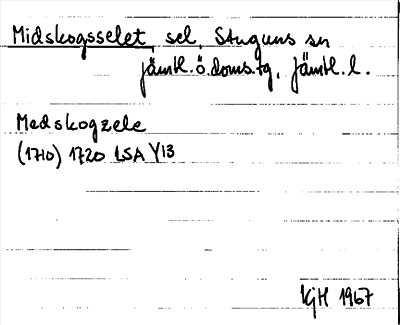 Midskogsselet, sel, Stuguns sn
jämtl. ö. doms. tg, Jämtl. l.
Medskogzele
(1710) 1720 LSA Y13
KjH 1967